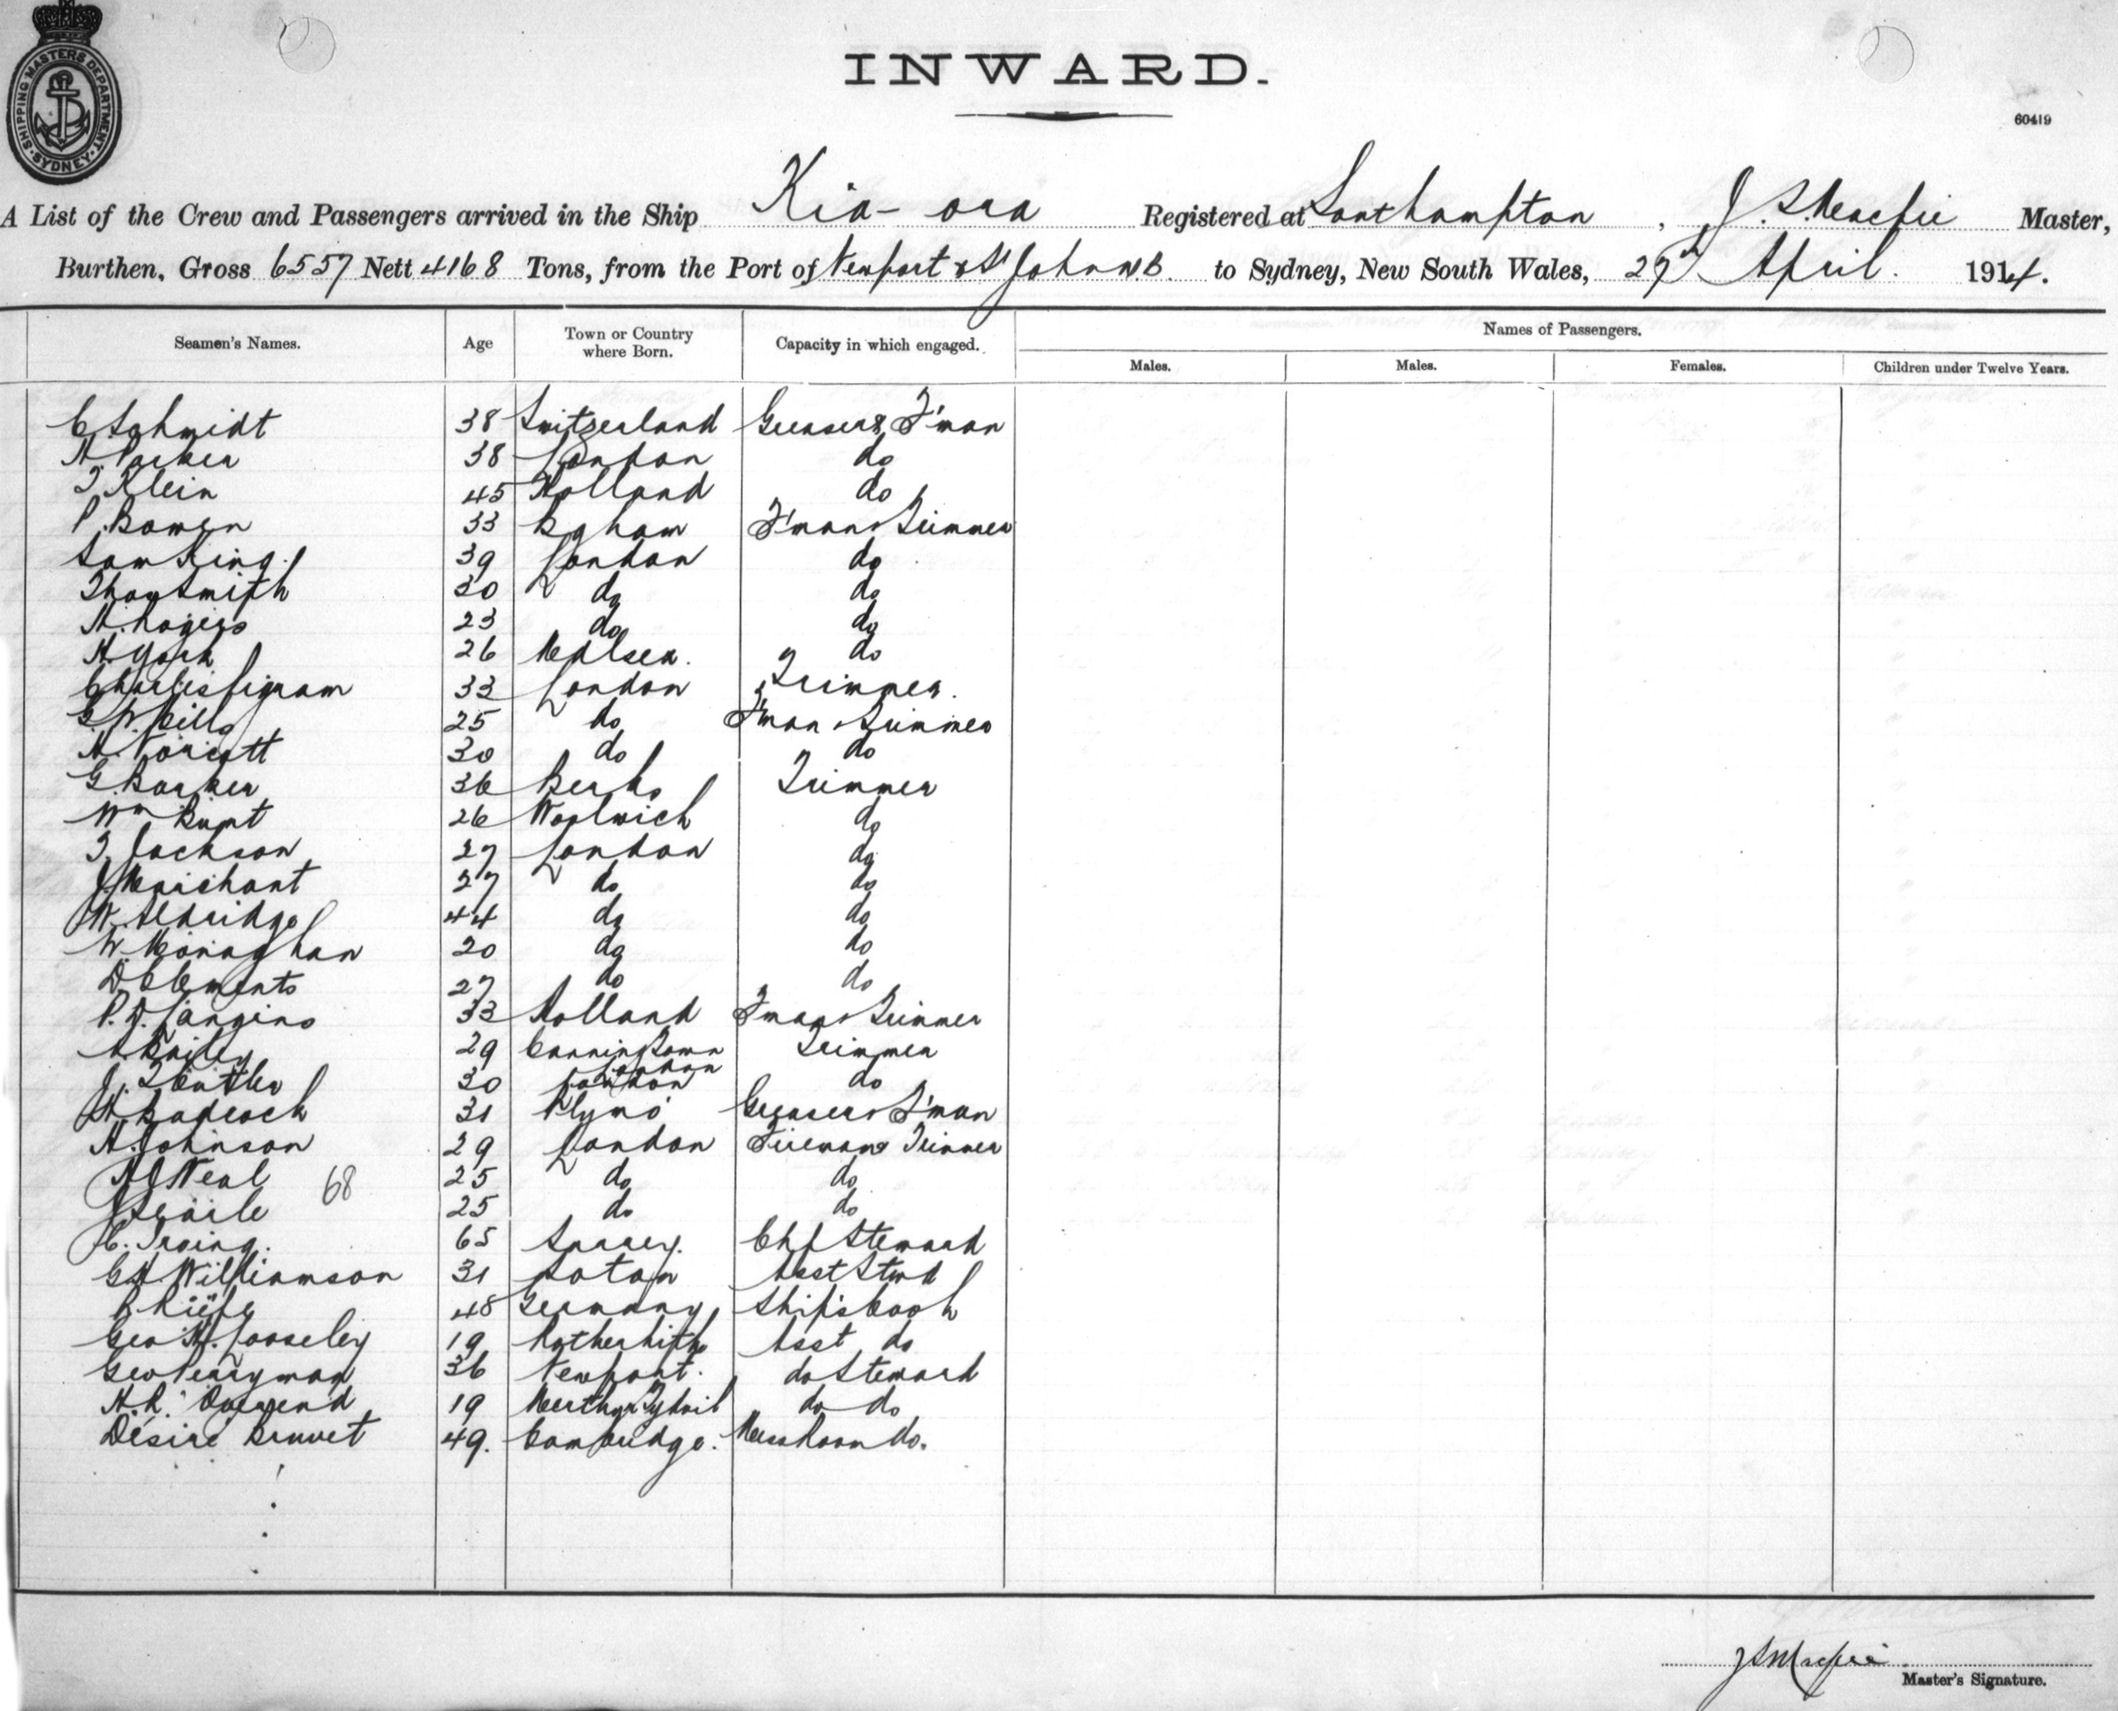 SHIPPING MASTERS DEPARTMENT. SYDNEY.
INWARD.
60419
A List of the Crew and Passengers arrived in the Ship Kia-ora Registered at Southampton, J. S. Macfie Master,
Burthen, Gross 6557 Nett 4168 Tons, from the Port of Newport & St John N.B. to Sydney, New South Wales, 27th April. 1914.
Seamen's Names. Age Town or Country where Born. Capacity in which engaged. Names of Passengers.
Males. Males. Females. Children under Twelve Years.
C. Schmidt 38 Switzerland Greaser & F'man
H. Parker 38 London do
T. Klein 45 Holland do
P. Bowen 33 F'man & Trimmer
Sam King. 39 London do
Thos Smith 30 do do
H. Rogers 23 do do
H. York 26 do
Charles 33 London Trimmer.
25 do F'man & Trimmer
H. Norcott 30 do do
G. Barker 36 Berks Trimmer
Wm Bunt 26 Woolwich do
T. Jackson 27 London do
J. Marchant 27 do do
W. Aldridge 44 do do
W. Monaghan 20 do do
D. Clements 27 do do
P. D. 33 Holland F'man & Trimmer
A. Bailey 29 Canning Town London Trimmer
J. T. Cuttler 30 London do
H. Badcock 31 Plymo' Greaser & F'man
H. Johnson 29 London Fireman & Trimmer
H J Neal 68 25 do do
J Searle 25 do do
C. Irving. 65 Surrey. Chf Steward
G H Williamson 31 Soton Asst Stwd
48 Germany Ship's Cook
Geo H. Looseley 19 Rotherhithe Asst do
Geo Perryman 36 Newport. do Steward
H. R. 19 Merthyr Tydvil do do
Désiré Bruvet 49. Cambridge. Messroom do.
J S Macfie
Master's Signature.